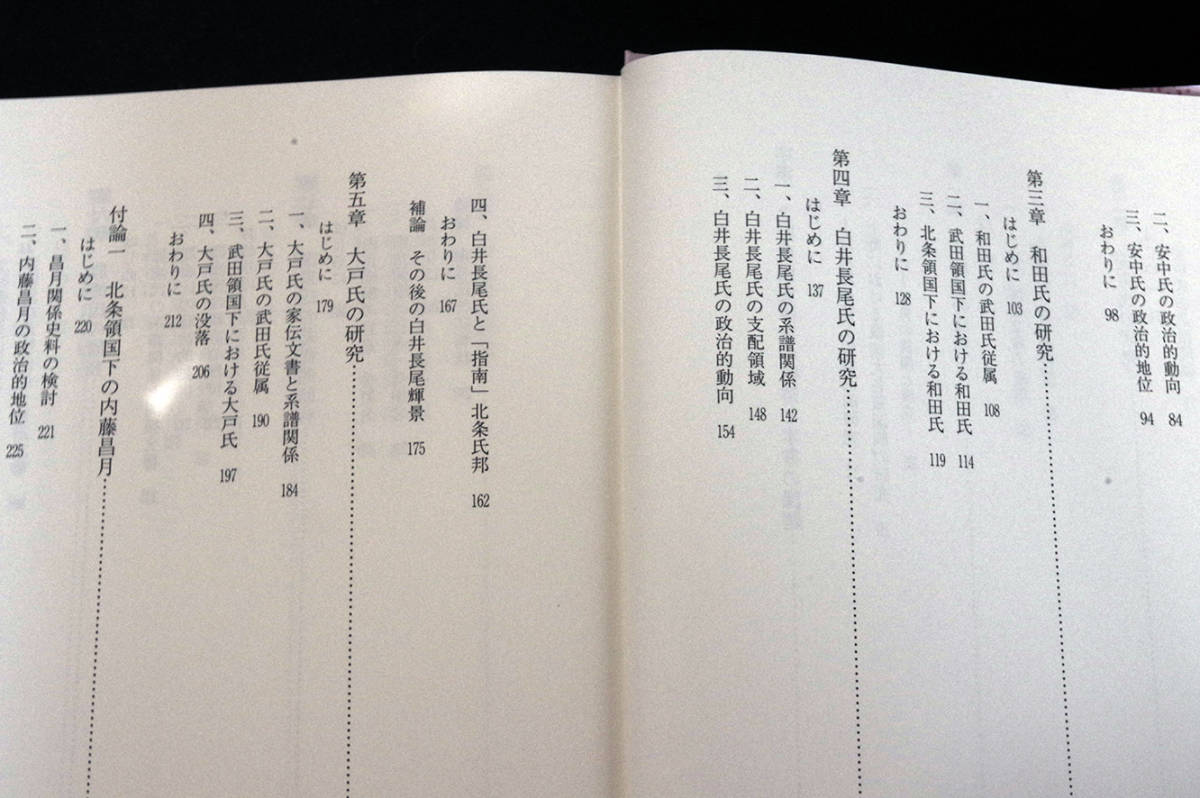 二、安中氏の政治的動向 84
三、安中氏の政治的地位 94
おわりに 98
第三章 和田氏の研究……………………
はじめに 103
一、和田氏の武田氏従属 108
二、武田領国下における和田氏 114
三、北条領国下における和田氏 119
おわりに 128
第四章 白井長尾氏の研究……………………
はじめに 137
一、白井長尾氏の系譜関係 142
二、白井長尾氏の支配領域 148
三、白井長尾氏の政治的動向 154
四、白井長尾氏と「指南」北条氏邦 162
おわりに 167
補論 その後の白井長尾輝景 175
第五章 大戸氏の研究……………………
はじめに 179
一、大戸氏の家伝文書と系譜関係 184
二、大戸氏の武田氏従属 190
三、武田領国下における大戸氏 197
四、大戸氏の没落 206
おわりに 212
付論一 北条領国下の内藤昌月……………………
はじめに 220
一、昌月関係史料の検討 221
二、内藤昌月の政治的地位 225